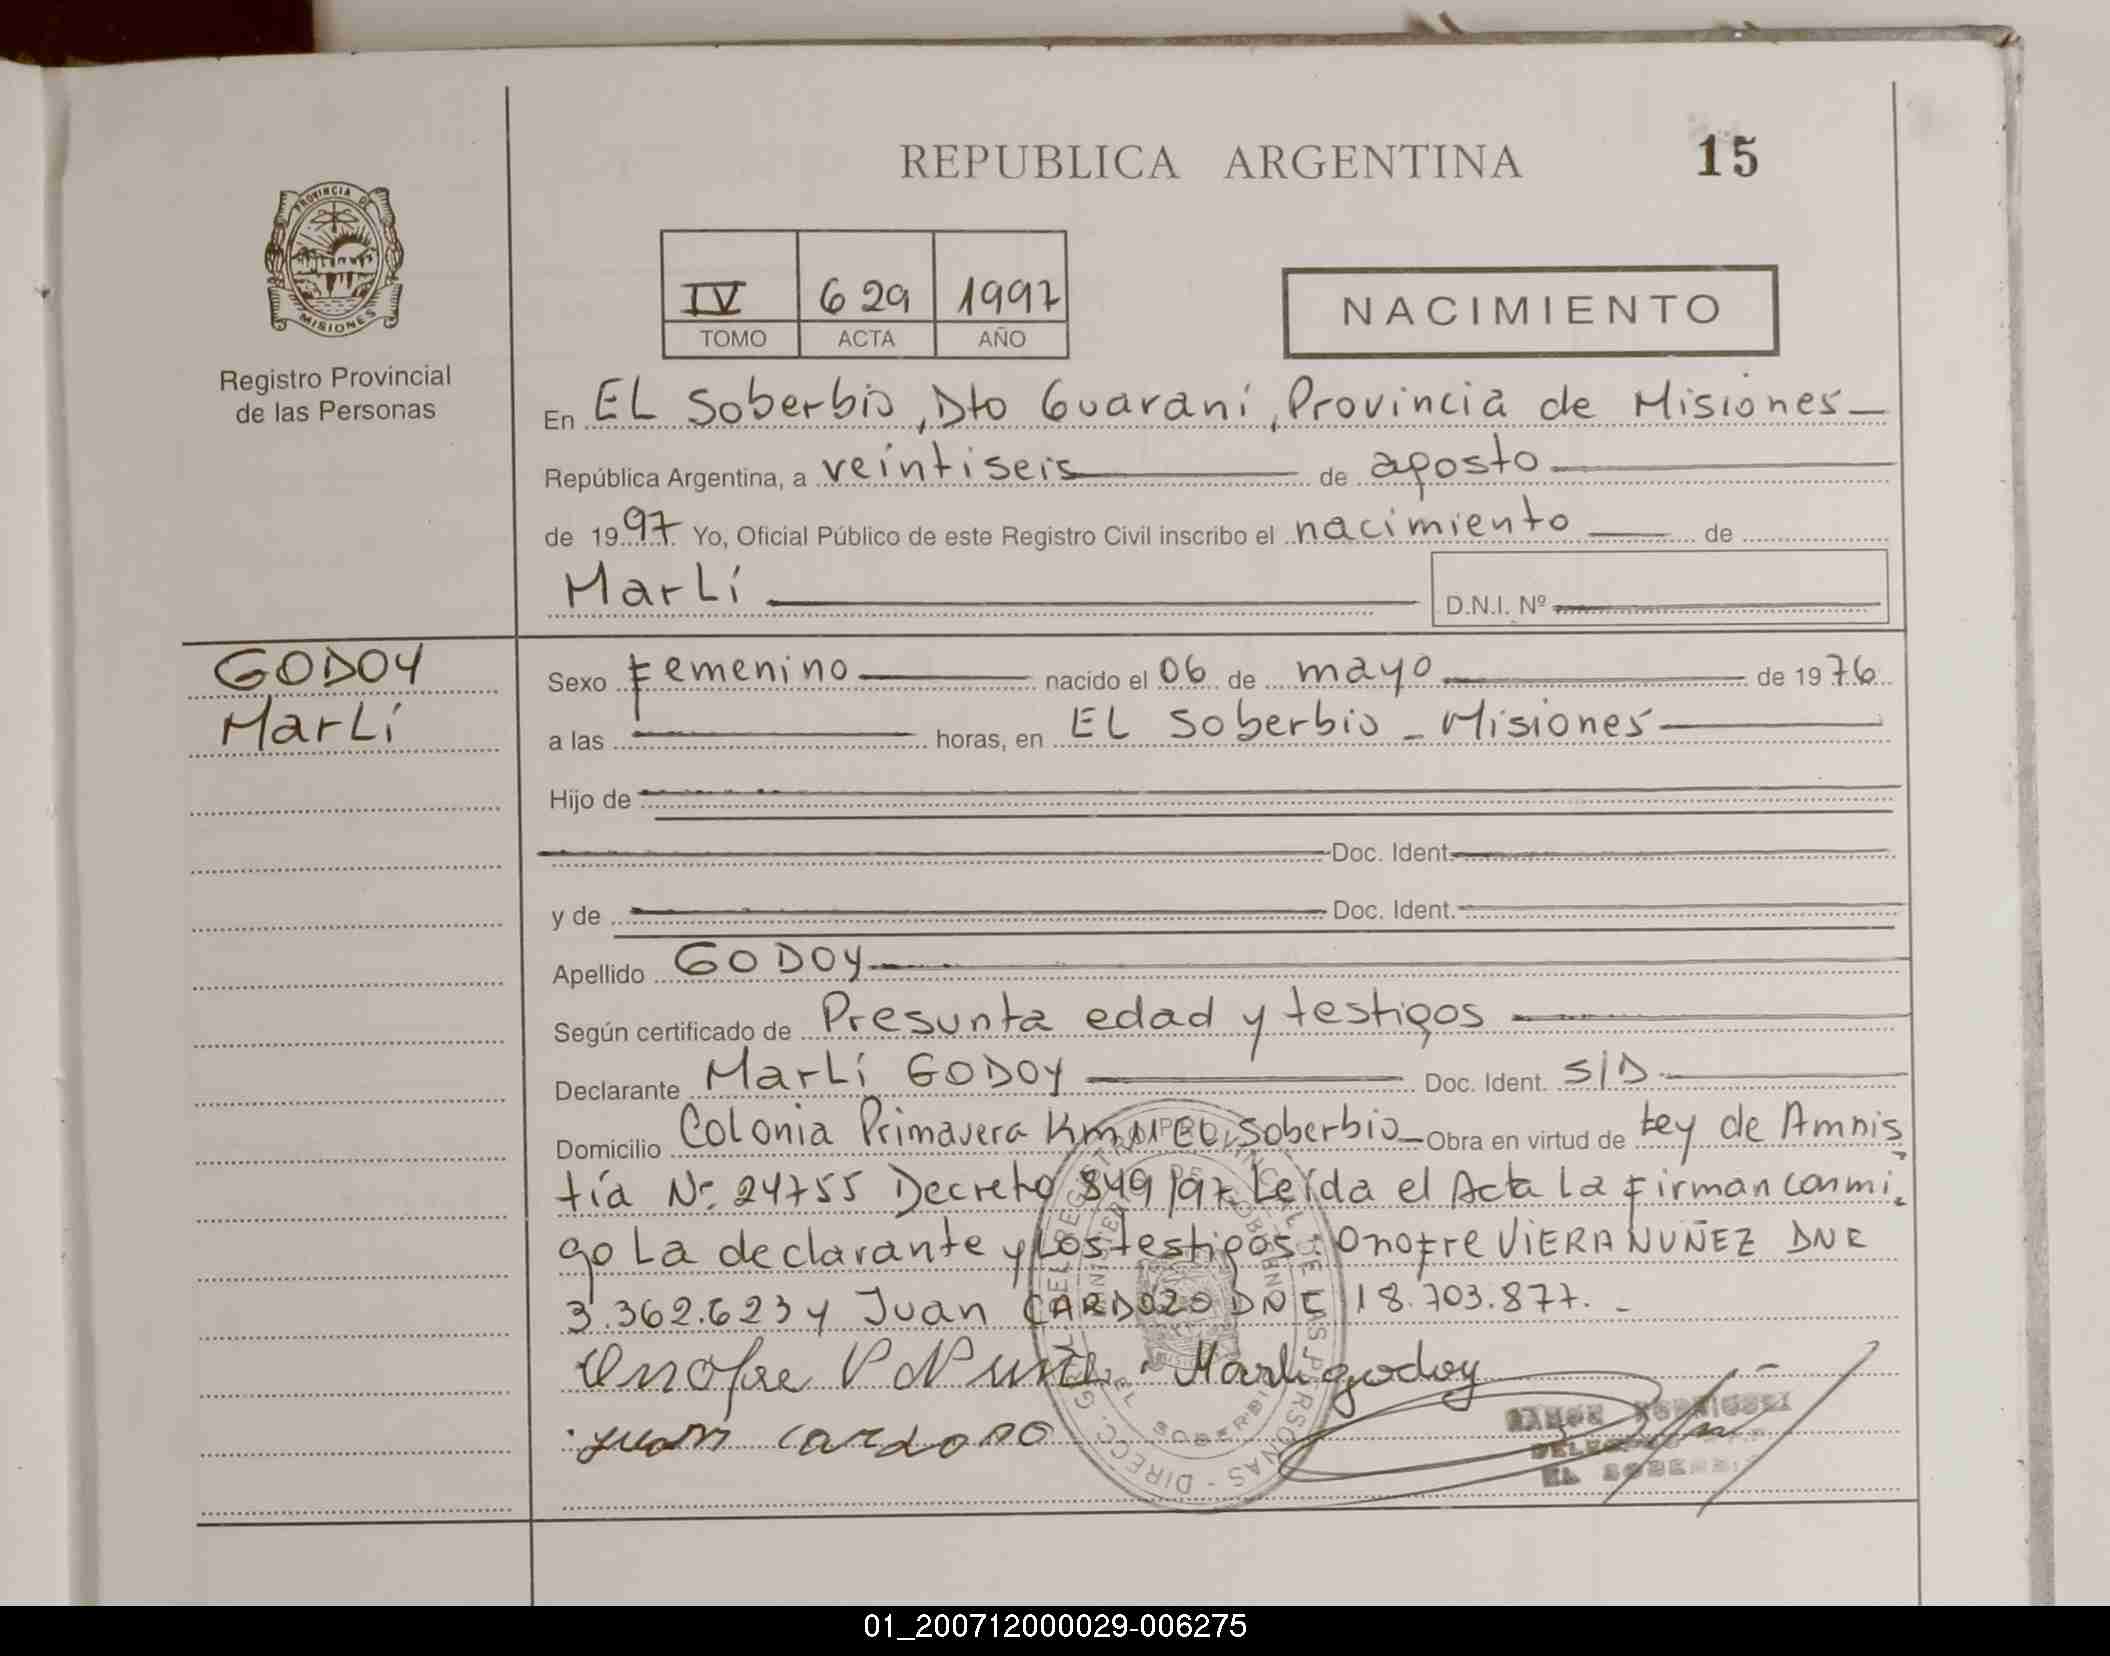 REPUBLICA ARGENTINA
15
PROVINCIA DE
MISIONES
Registro Provincial
de las Personas
IV 629 1997
TOMO ACTA AÑO
NACIMIENTO
En EL Soberbio, Dto Guaraní, Provincia de Misiones
República Argentina, a veintiseis de agosto
de 1997 Yo, Oficial Público de este Registro Civil inscribo el nacimiento de
MarLí
D.N.I. Nº
GODOY
MarLí
Sexo Femenino nacido el 06 de mayo de 1976
a las horas, en EL Soberbio - Misiones
Hijo de
Doc. Ident.
y de Doc. Ident.
Apellido GODOY
Según certificado de Presunta edad y testigos
Declarante MarLí GODOY Doc. Ident. S/D
Domicilio Colonia Primavera Km EL Soberbio - Obra en virtud de Ley de Amnis
tía Nº 24755 Decreto 849/97 Leída el Acta La Firman conmi
go La declarante y Los testigos: Onofre VIERA NUÑEZ DNE
3.362.623 y Juan CARDOZO DNE 18.703.877.-
Onofre V Nuñez Marli godoy
juan cardozo
RAMON RODRIGUEZ
EL SOBERBIO
01_200712000029-006275